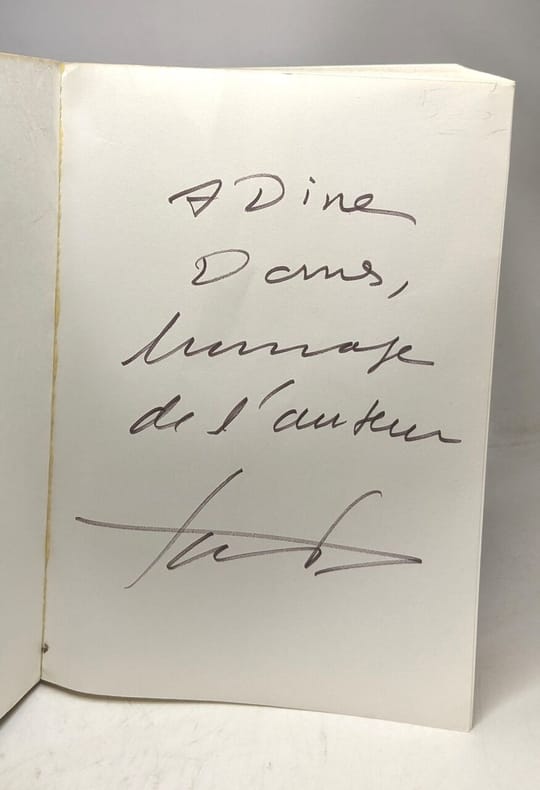 A Dine
hommage
de l'auteur